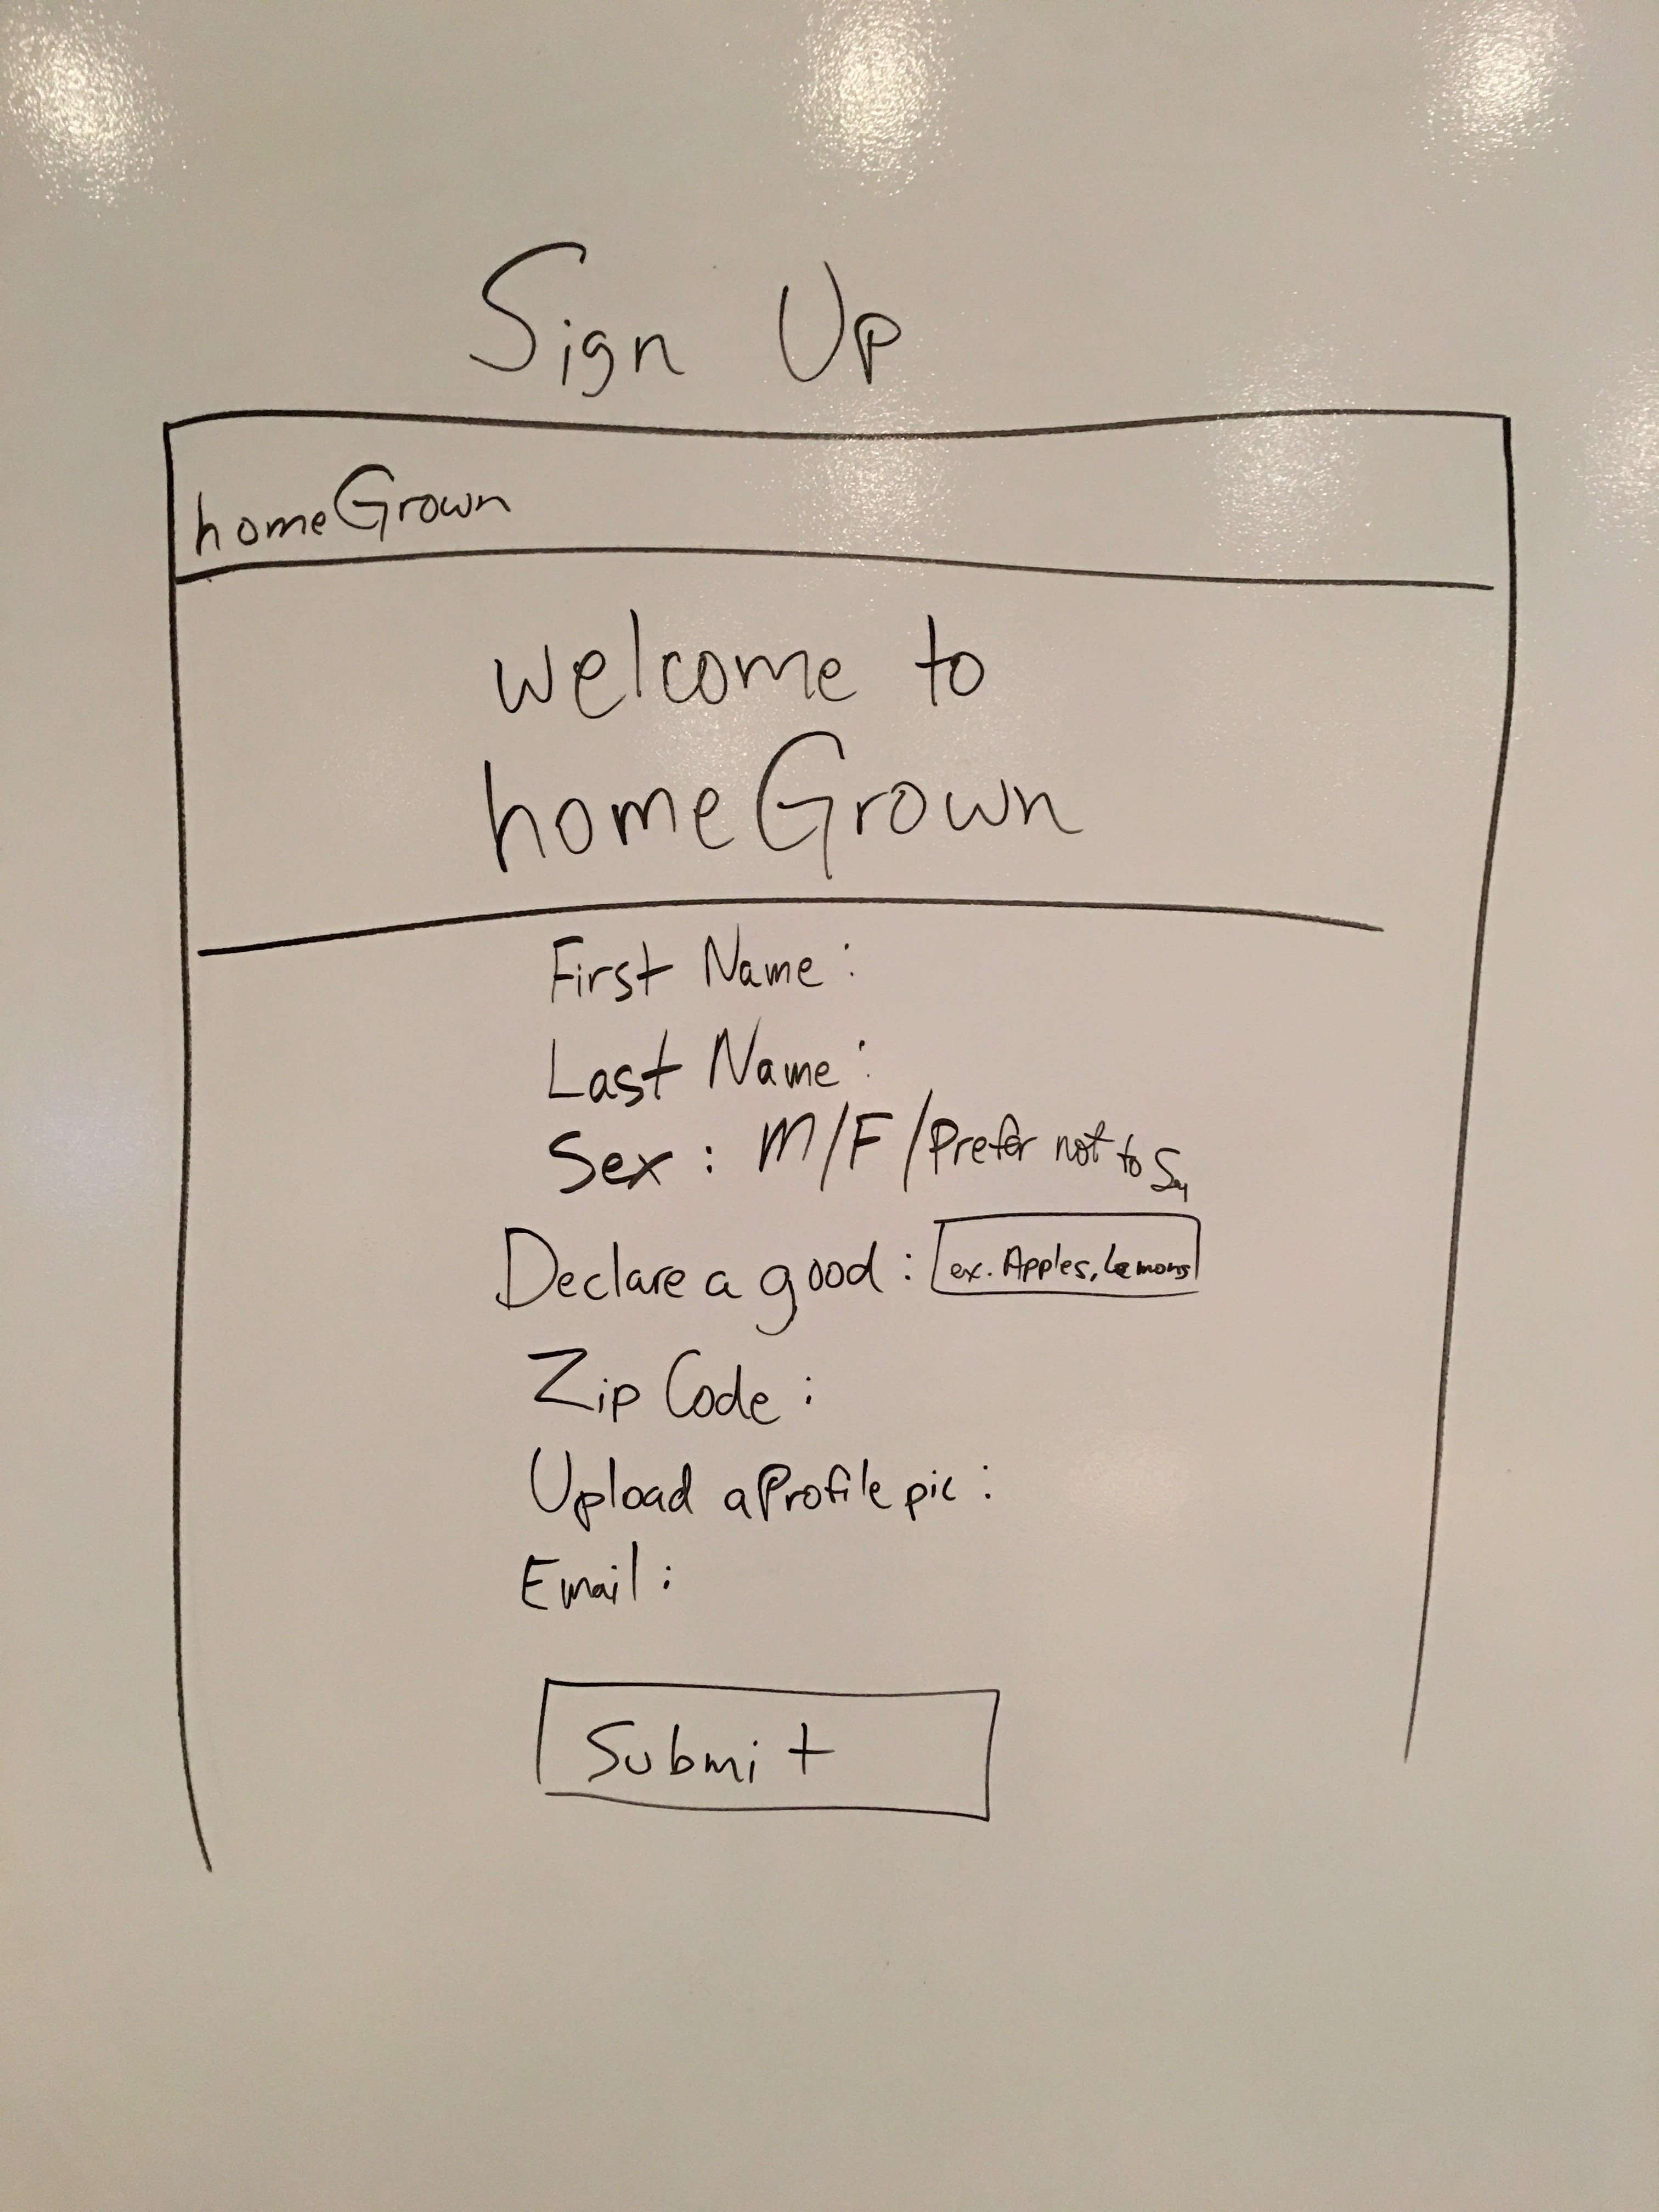 Sign Up
homeGrown
welcome to
homeGrown
First Name :
Last Name :
Sex : M/F/Prefer not to Say
Declare a good : ex. Apples, Lemons
Zip Code :
Upload a Profile pic :
Email :
Submit